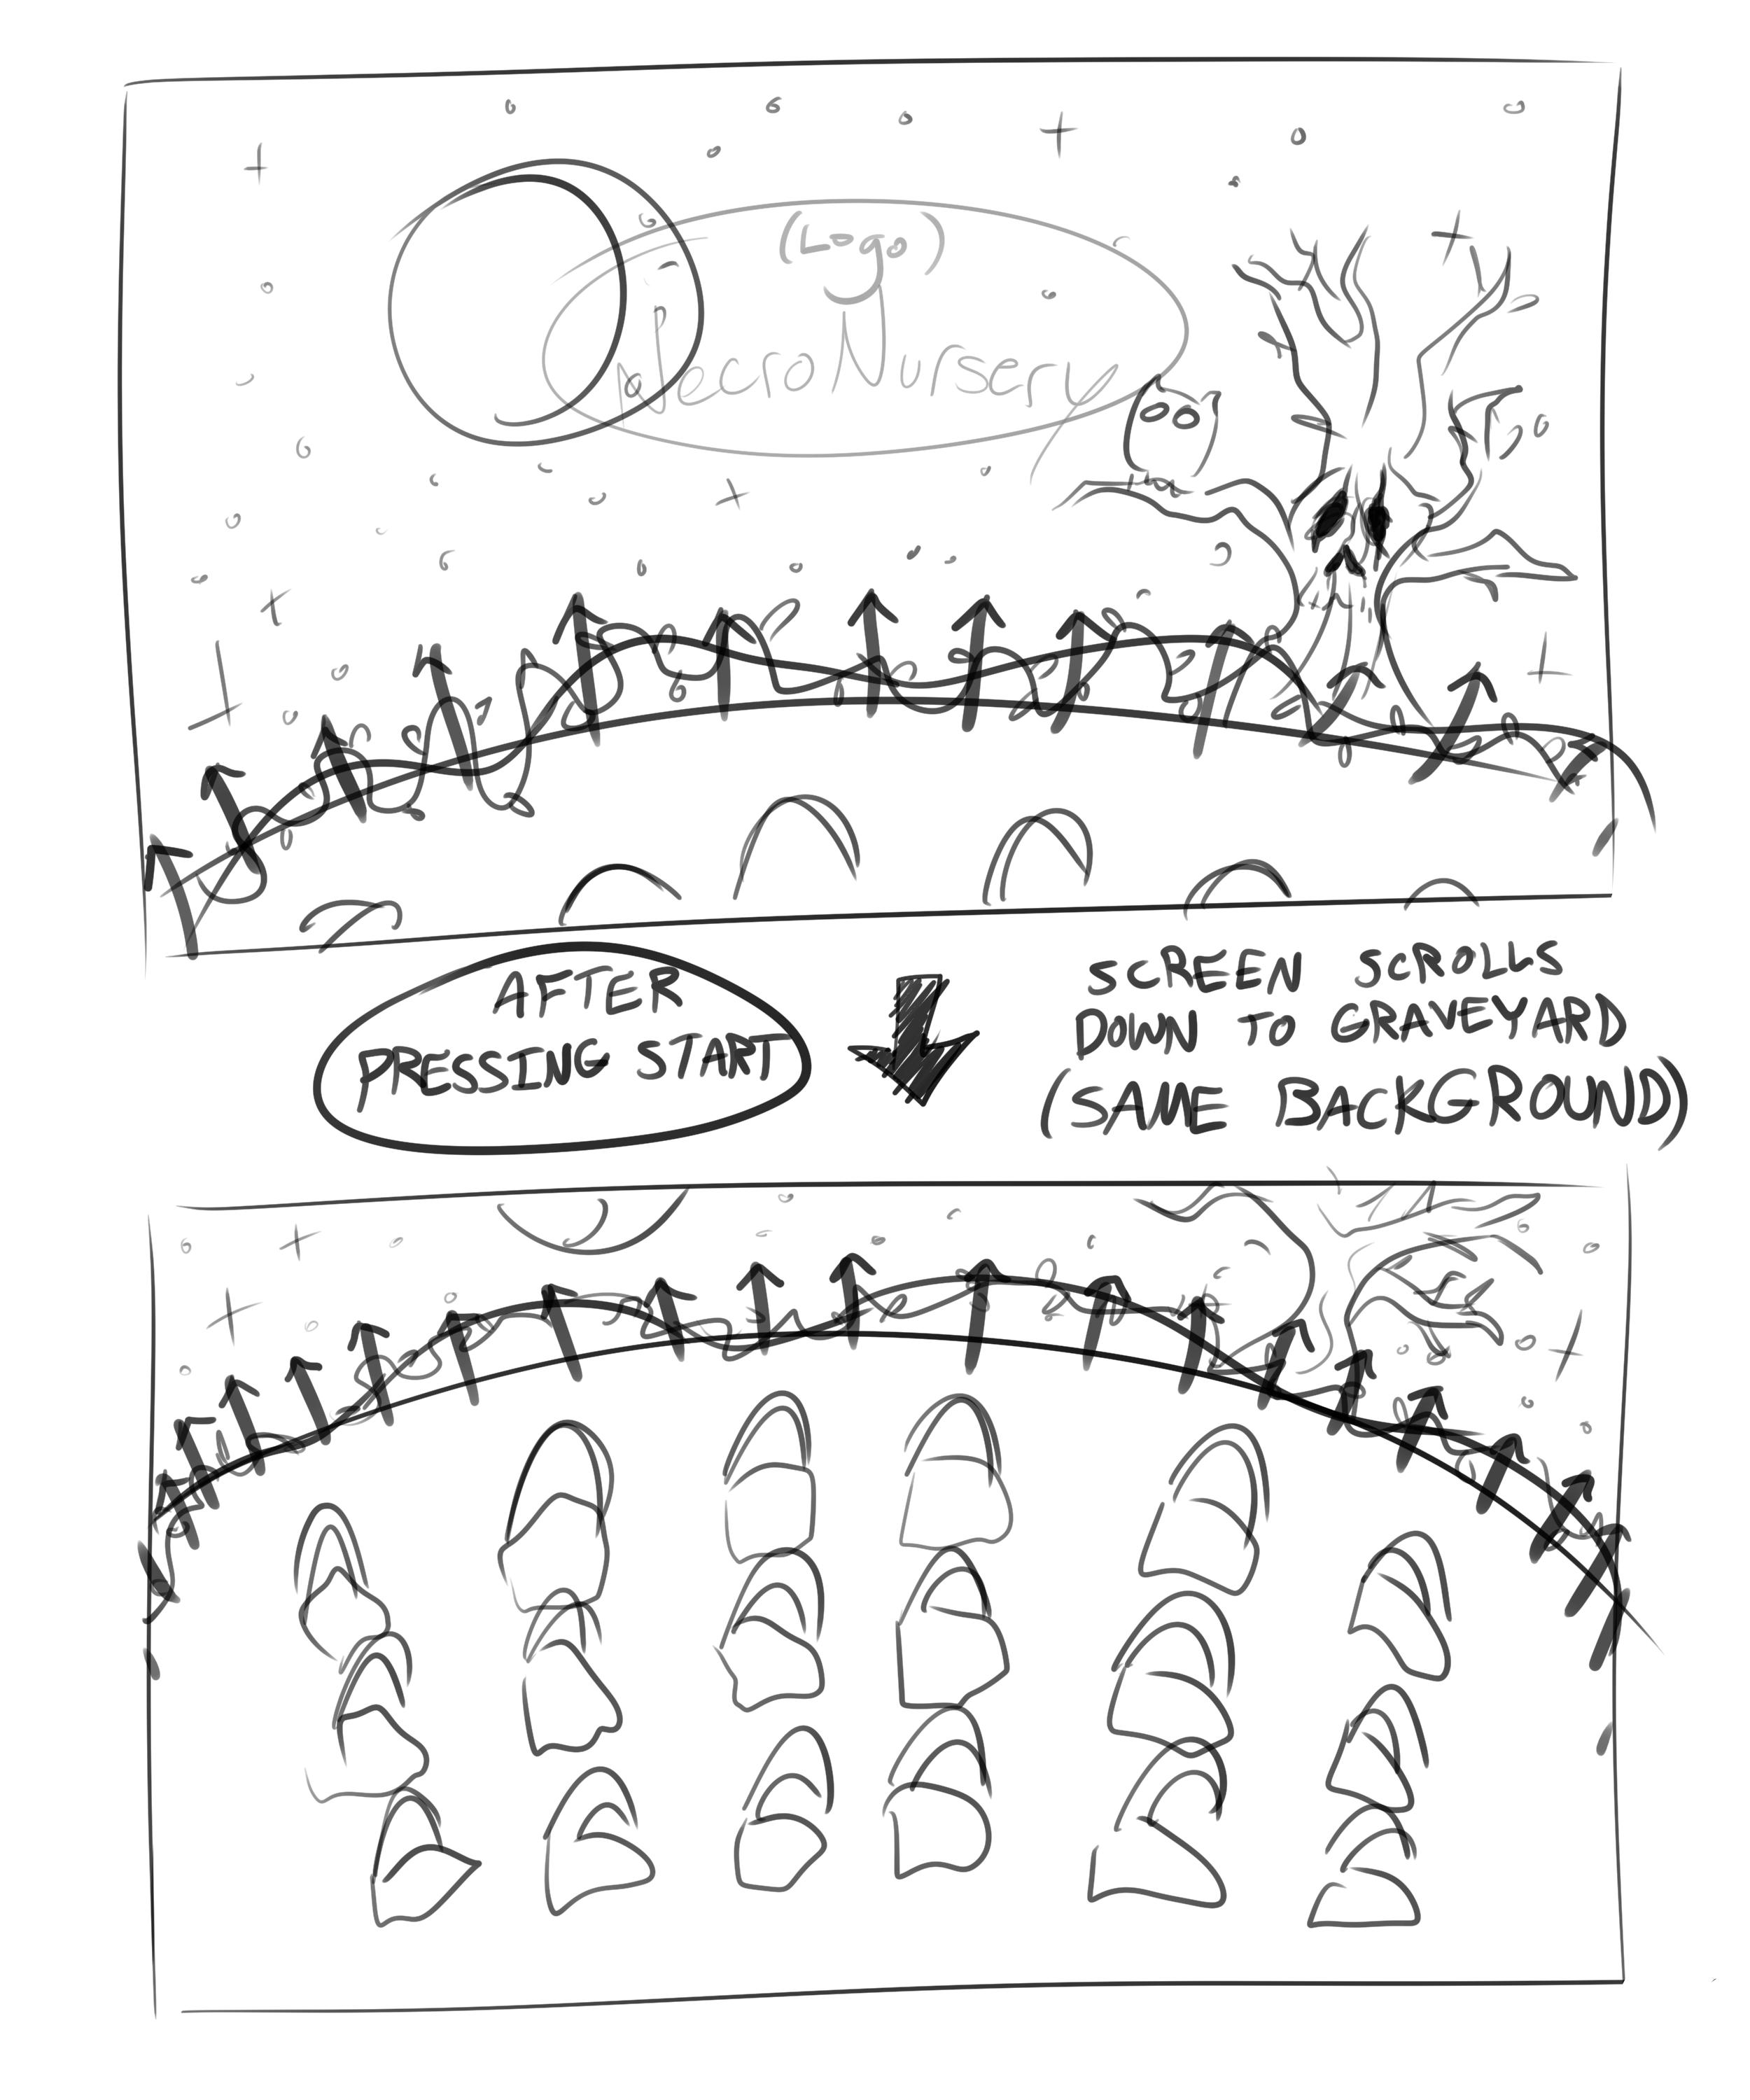 (Logo)
NecroNursery
AFTER
PRESSING START
SCREEN SCROLLS
DOWN TO GRAVEYARD
(SAME BACKGROUND)